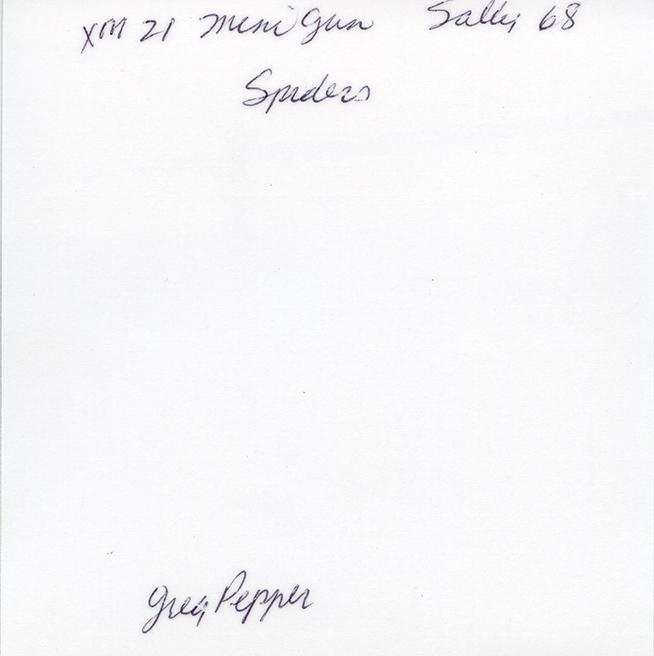 XM 21 Mini Gun Sally 68
Spiders
Greg Pepper